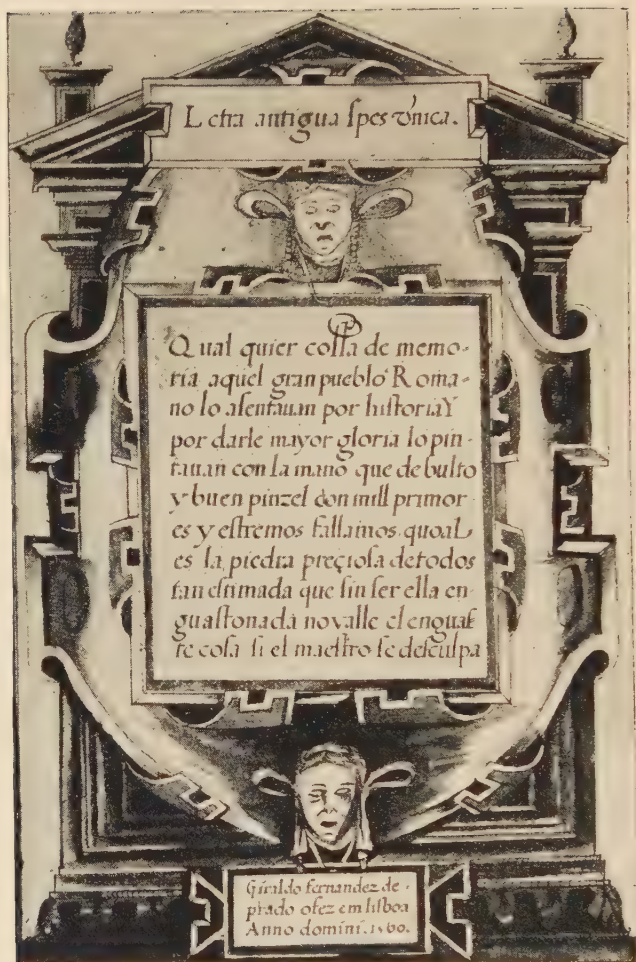 Letra antigua ſpes vnica.
Qual quier coſſa de memo-
ria aquel gran pueblo Roma-
no lo aſentauan por hiſtoria Y
por darle mayor gloria lo pin-
tauan con la mano que de bulto
y buen pinzel don mill primor
es y eſtremos fallamos. quoal
es la piedra preçioſa de todos
tan eſtimada que ſin ſer ella en
guaſtonada no valle el enguaſ
te coſa ſi el maeſtro ſe deſculpa
Giraldo fernandez de
prado o fez em liſboa
Anno domini. 1560.